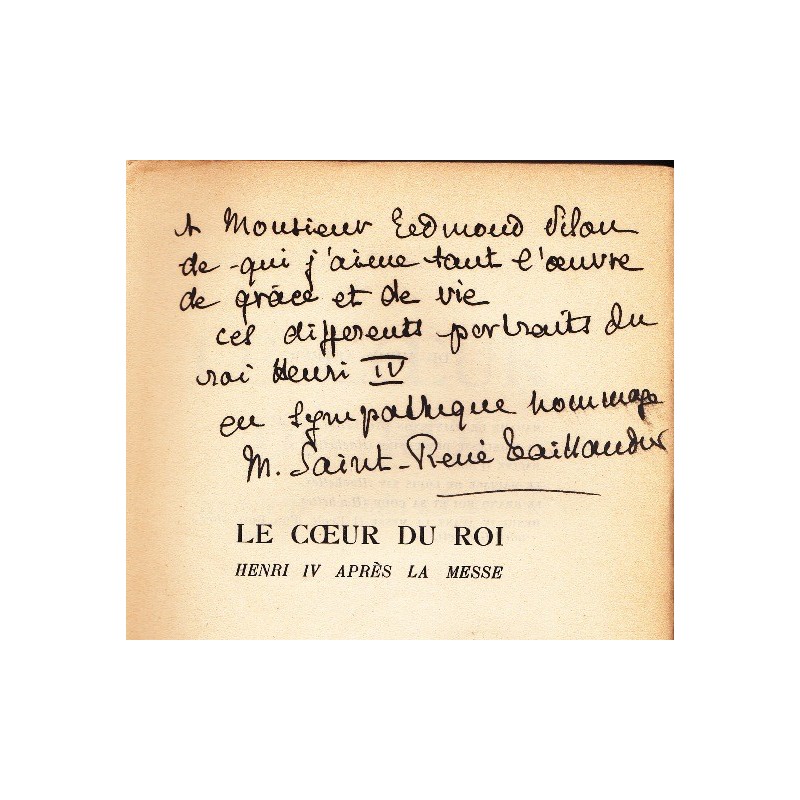 A Monsieur Edmond Pilon
de qui j'aime tant l'œuvre
de grâce et de vie
ces differents portraits du
roi Henri IV
en sympathique hommage
M. Saint-René Taillandier
LE CŒUR DU ROI
HENRI IV APRÈS LA MESSE